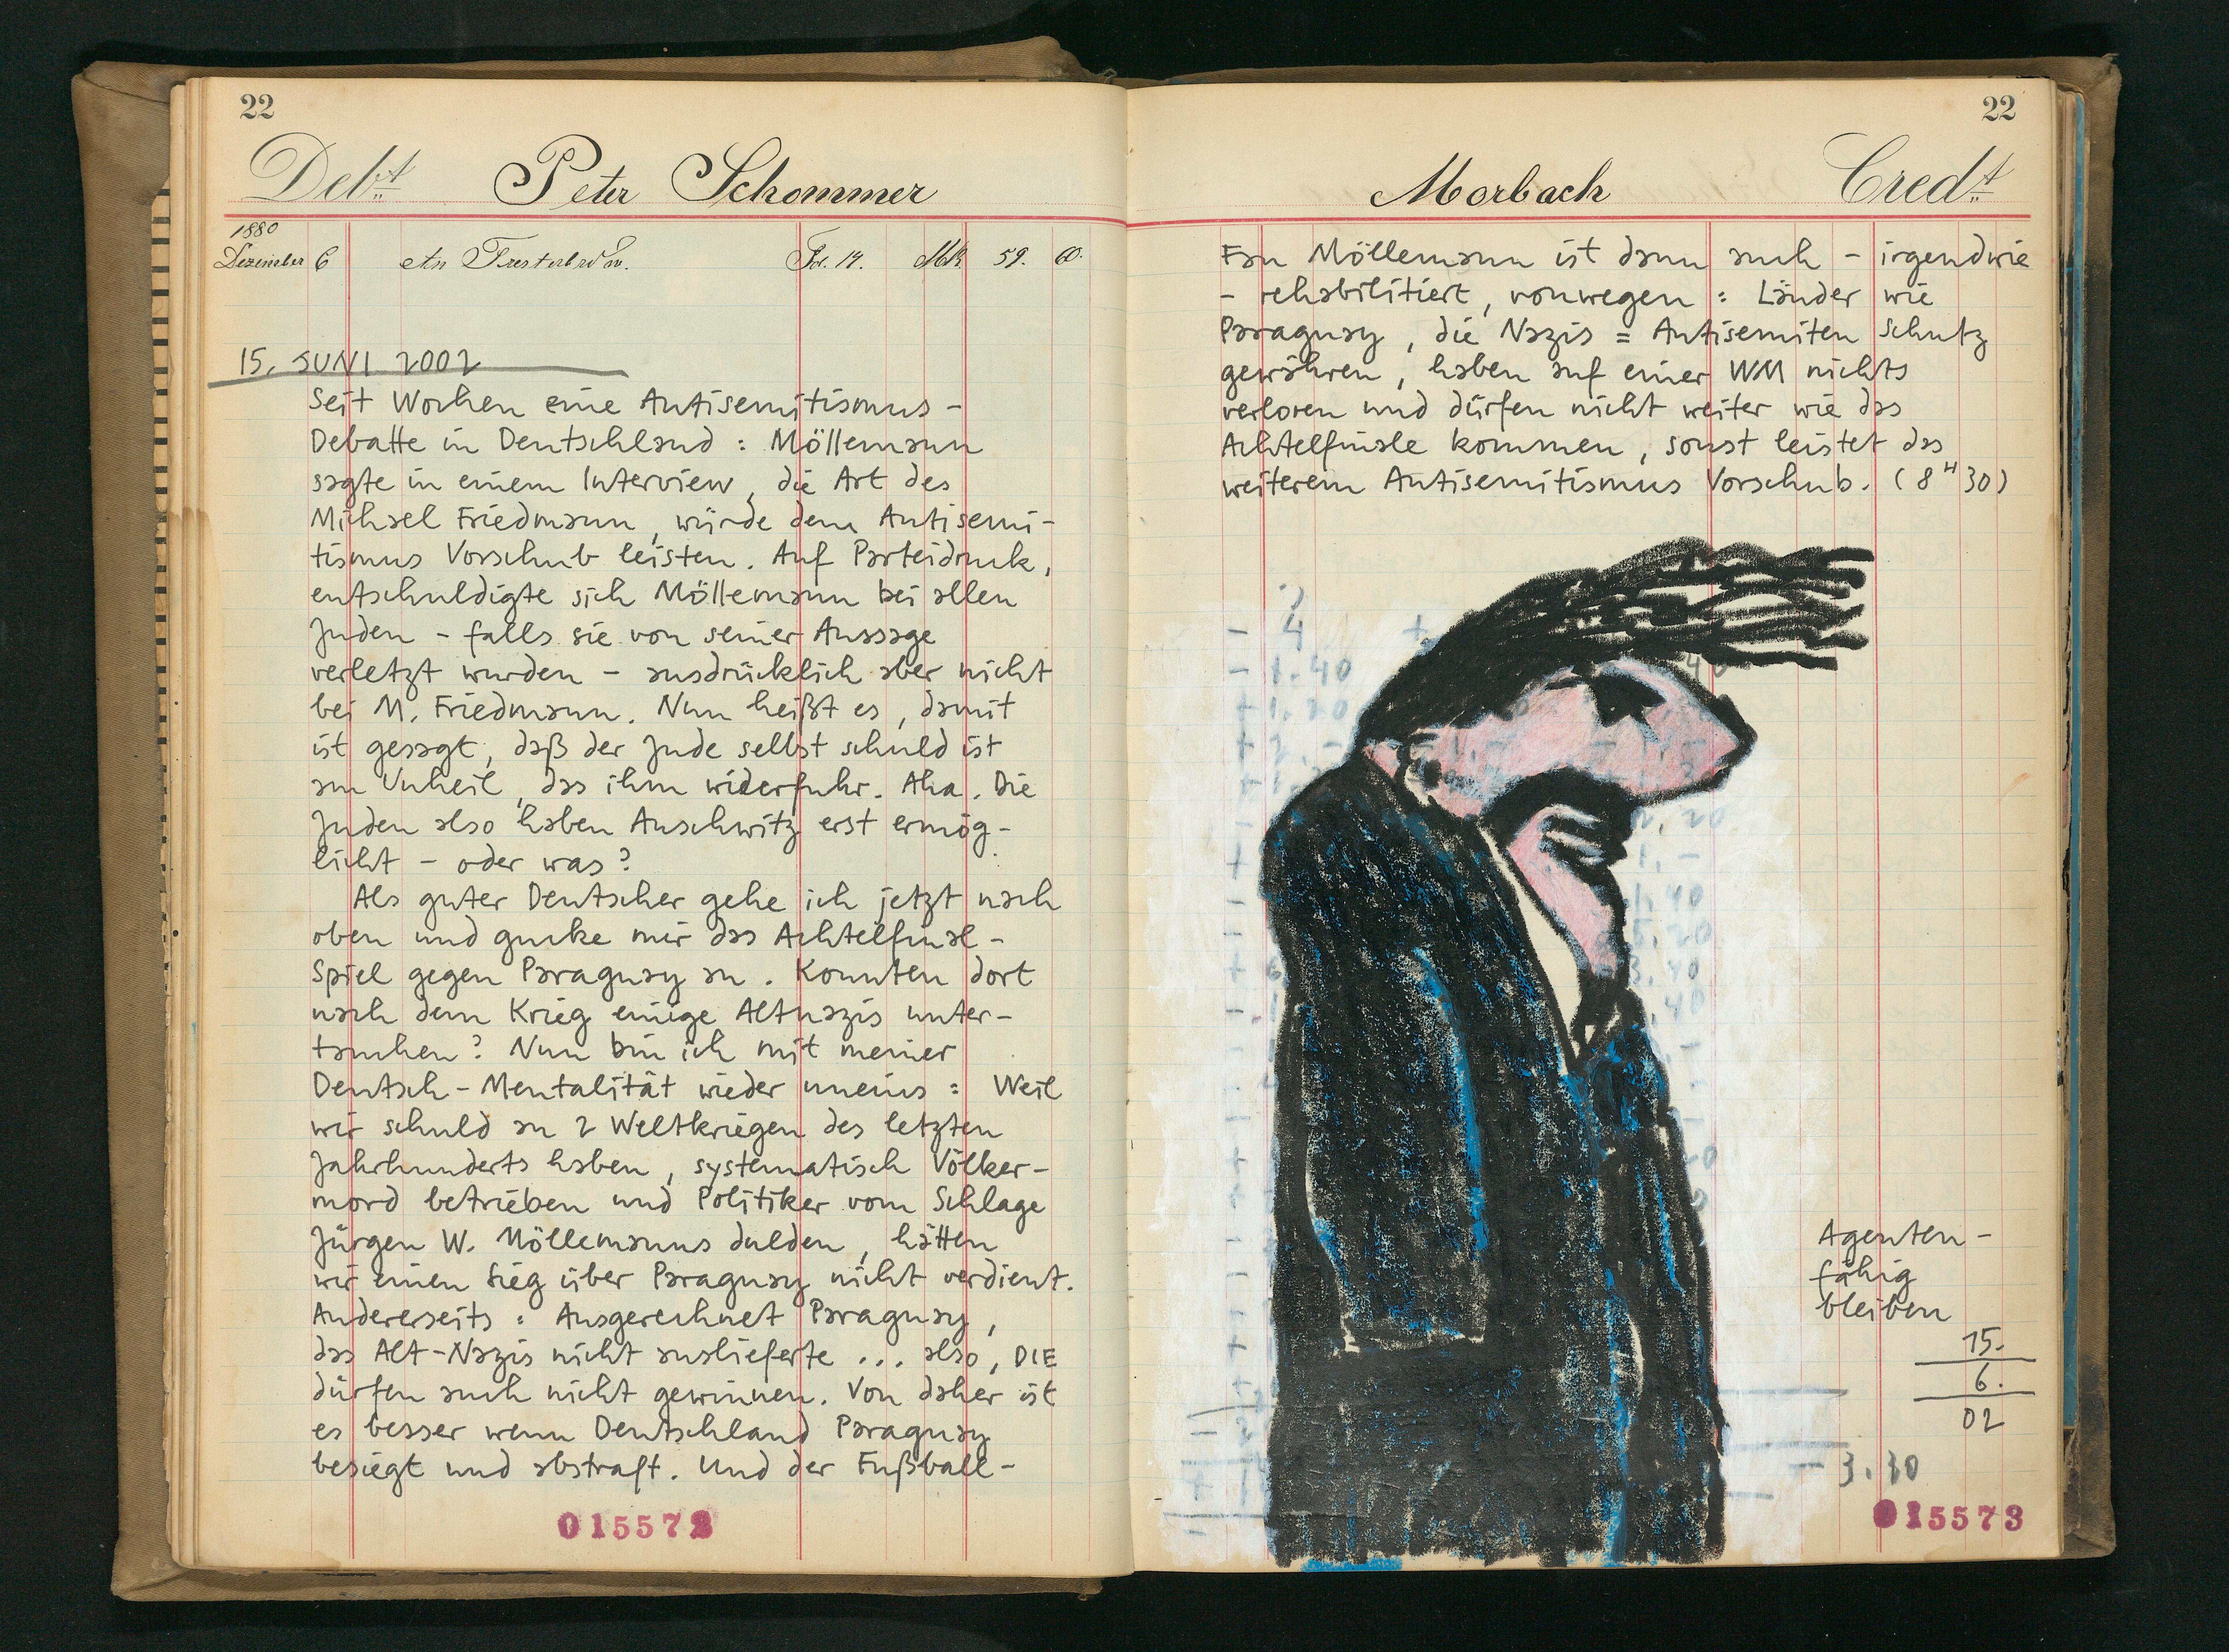 22
Debt Peter Schommer
1880
Dezember 6 An Fol. 14. Mk 59. 60.
15. JUNI 2002
Seit Wochen eine Antisemitismus-
Debatte in Deutschland : Möllemann
sagte in einem Interview, die Art des
Michael Friedmann, würde dem Antisemi-
tismus Vorschub leisten. Auf Parteidruck,
entschuldigte sich Möllemann bei allen
Juden - falls sie von seiner Aussage
verletzt wurden - ausdrücklich aber nicht
bei M. Friedmann. Nun heißt es, damit
ist gesagt, daß der Jude selbst schuld ist
am Unheil, das ihm widerfuhr. Aha. Die
Juden also haben Auschwitz erst ermög-
licht - oder was?
Als guter Deutscher gehe ich jetzt nach
oben und gucke mir das Achtelfinal-
Spiel gegen Paraguay an. Konnten dort
nach dem Krieg einige Altnazis unter-
tauchen? Nun bin ich mit meiner
Deutsch-Mentalität wieder uneins : Weil
wir schuld an 2 Weltkriegen des letzten
Jahrhunderts haben, systematisch Völker-
mord betrieben und Politiker vom Schlage
Jürgen W. Möllemanns dulden, hätten
wir einen Sieg über Paraguay nicht verdient.
Andererseits : Ausgerechnet Paraguay,
das Alt-Nazis nicht auslieferte ... also, DIE
dürfen auch nicht gewinnen. Von daher ist
es besser wenn Deutschland Paraguay
besiegt und abstraft. Und der Fußball-
015572
22
Morbach Credt
Fan Möllemann ist dann auch - irgendwie
- rehabilitiert, vonwegen : Länder wie
Paraguay, die Nazis = Antisemiten Schutz
gewähren, haben auf einer WM nichts
verloren und dürfen nicht weiter wie das
Achtelfinale kommen, sonst leistet das
weiterem Antisemitismus Vorschub. (8 H 30)
- 4 +
- 1.40 40
+ 1.20
2.20
1.-
1.40
5.20
3.40
40
Agenten-
fähig
bleiben
15.
6.
02
- 3.30
015573